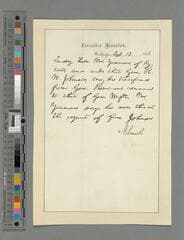 Executive Mansion,
Washington, Feb. 13, 186
Today, Hon. Mr. Yeaman of Ky.
calls and asks that Gen. R.
W. Johnson may be transferred
from Gen.
to that of Gen. Mr.
Yeaman says he does this at
the request of Gen. Johnson
A. Lincoln